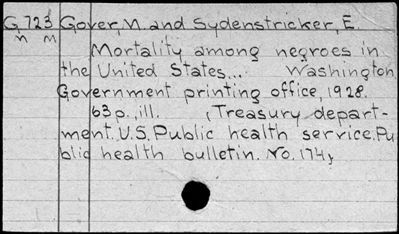 G.723 Gover, M. and Sydenstricker, E.
m m
Mortality among negroes in
the United States... Washington,
Government printing office, 1928.
63p., ill. (Treasury depart-
ment. U.S. Public health service. Pu
blic health bulletin. No. 174)